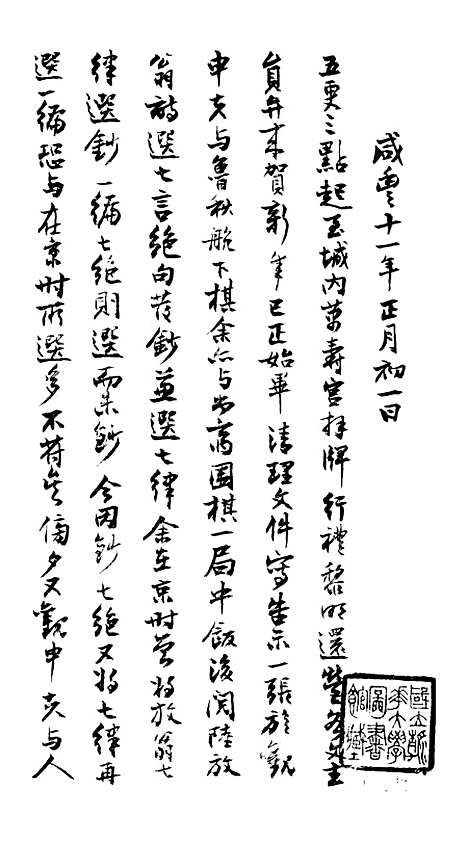 咸豐十一年正月初一日
五更三點起至城內萬壽宮拜牌行禮黎明還營各文武
員弁來賀新年巳正始畢清理文件寫告示一張旋觀
申夫與魯秋航下棋余亦與尚齋圍棋一局中飯後閱陸放
翁詩選七言絕句發鈔並選七律余在京時曾將放翁七
律選鈔一編七絕則選而未鈔今因鈔七絕又將七律再
選一編恐與在京時所選多不符矣傍夕又觀申夫與人
國立
大學
圖書
館藏